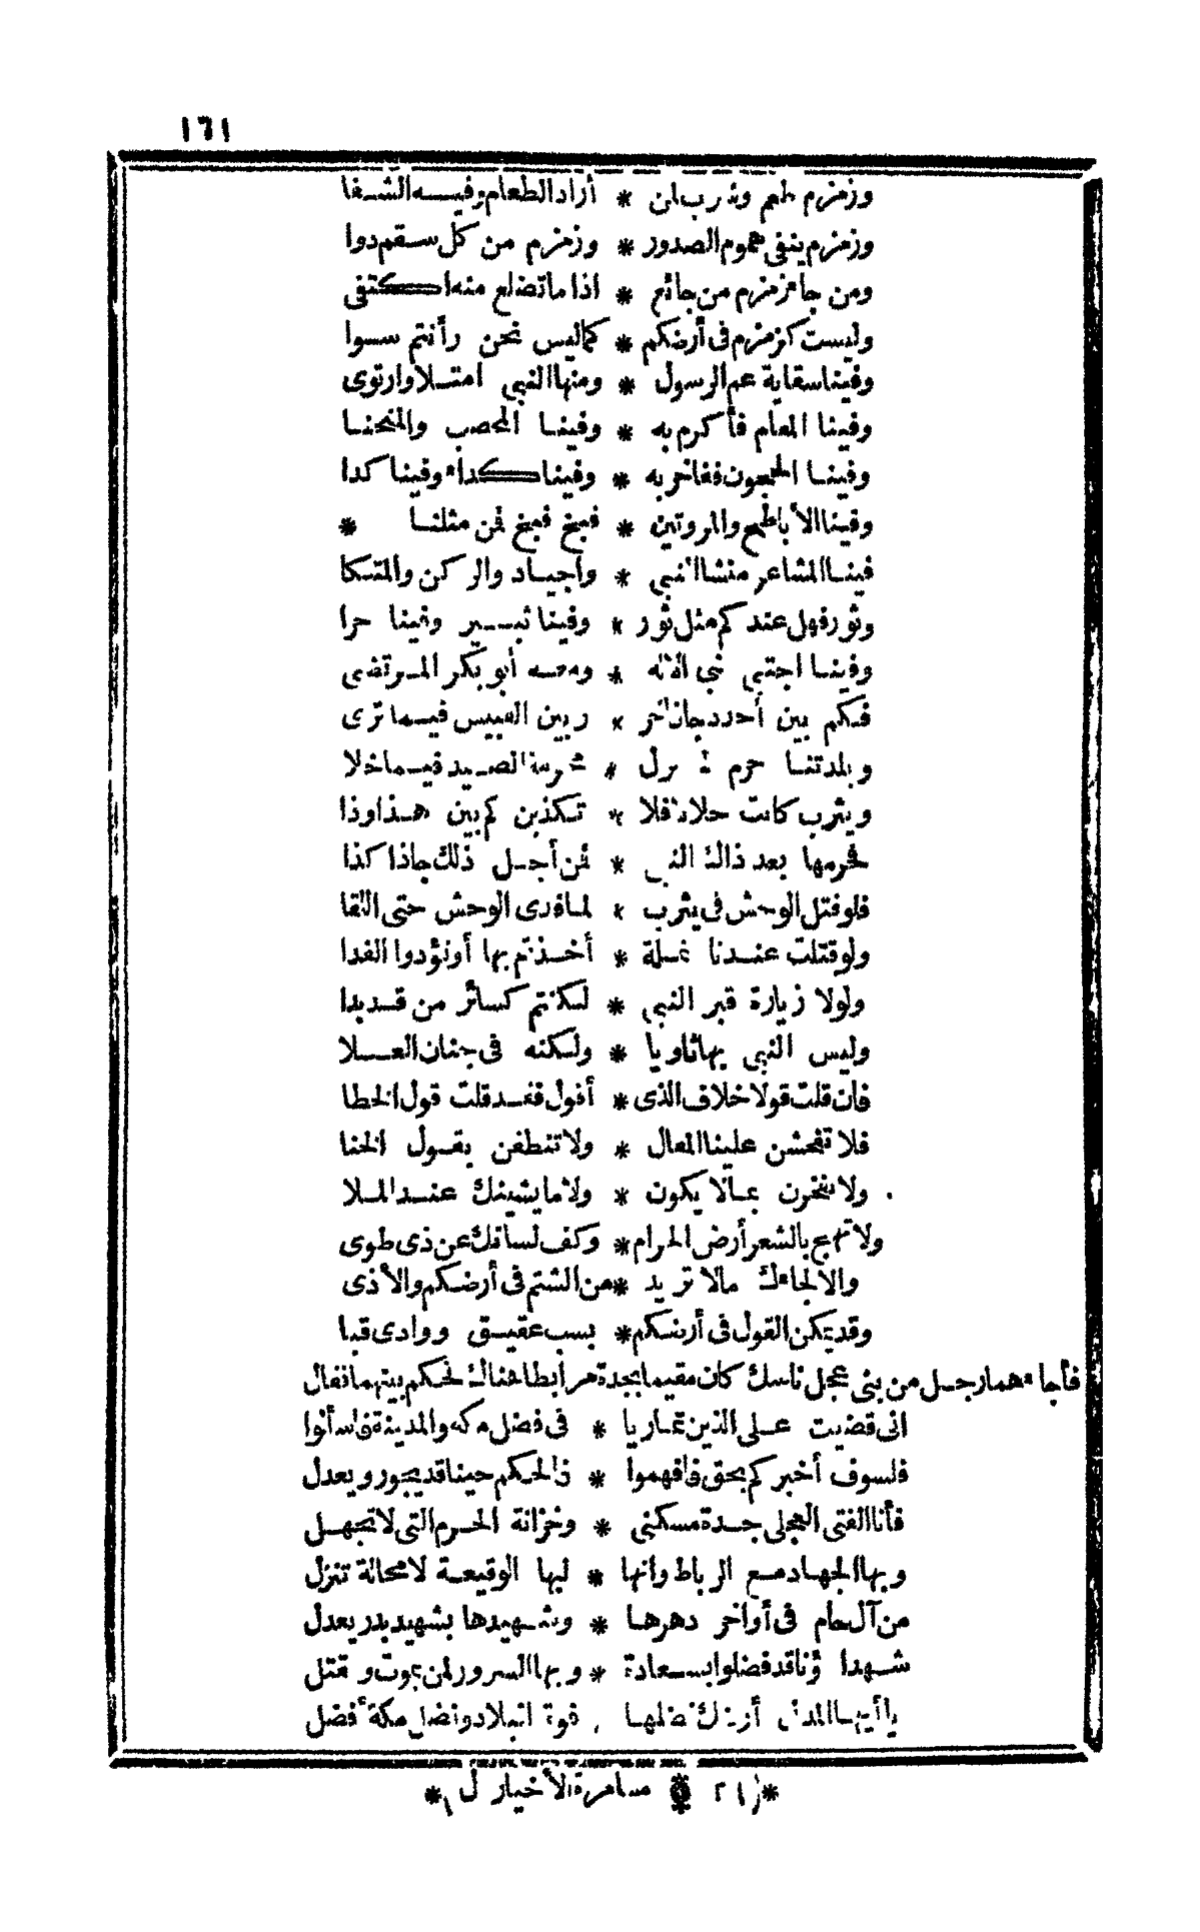 ١٦١
وزمزم طعم وشرب لمن * أراد الطعام وفيه الشفا
وزمزم ينفى هموم الصدور * وزمزم من كل سقم دوا
ومن جاء زمزم من جائع * اذا ما تضلع منه اكتفى
وليست كزمزم فى أرضكم * كما ليس نحن وأنتم سوا
وفينا سقاية عم الرسول * ومنها النبى امتلا وارتوى
وفينا المقام فأكرم به * وفينا المحصب والمنحنا
وفينا الحجون ففاخر به * وفينا كداء وفينا كدا
وفينا الأباطح والمروتين * فبخ فبخ فمن مثلنا *
فينا المشاعر منشا النبى * وأجياد والركن والمتكا
وثور فهل عندكم مثل ثور * وفينا ثبير وفينا حرا
وفينا اجتبى نبى الاله * ومعه أبو بكر المرتضى
فكم بين أحد وجاناخر * وبين القبيس فيما ترى
وبلدتنا حرم لم يزل * محرمة الصيد فيما خلا
ويثرب كانت حلالا فلا * تكذبن كم بين هذا وذا
فحرمها بعد ذاك النبى * فمن أجل ذلك جاذا كذا
فلو قتل الوحش فى يثرب * لما فدى الوحش حتى اللقا
ولو قتلت عندنا نملة * أخذتم بها أو نؤدوا الفدا
ولولا زيارة قبر النبى * لكنتم كسائر من قد بدا
وليس النبى بها ثاويا * ولكنه فى جنان العلا
فان قلت قولا خلاف الذى * أقول فقد قلت قول الخطا
فلا تفحشن علينا المقال * ولا تنطقن بقول الخنا
ولا تفخرن بما لا يكون * ولا ما يشينك عند الملا
ولا تهج بالشعر أرض الحرام * وكف لسانك عن ذى طوى
والا لجاءك مالا تريد * من الشتم فى أرضكم والأذى
وقد يمكن القول فى أرضكم * بسب عقيق ووادى قبا
فأجاءهما رجل من بنى عجل ناسك كان مقيما بجدة مرابطا هنالك فحكم بينهما فقال
انى قضيت على الذين تماريا * فى فضل مكة والمدينة فاسألوا
فلسوف أخبركم بحق فافهموا * فالحكم حينا قد يجور ويعدل
فأنا الفتى العجلى جدة مسكنى * وخزانة الحرم التى لا تجهل
وبها الجهاد مع الرباط وانها * لبها الوقيعة لا محالة تنزل
من آل حام فى أواخر دهرها * وشهيدها بشهيد بدر يعدل
شهداؤنا قد فضلوا بسعادة * وبها السرور لمن يموت ويقتل
يا أيها المدنى أرضك فضلها * فوق البلاد وفضل مكة أفضل
* (٢١ * مسامرة الأخيار ل) *